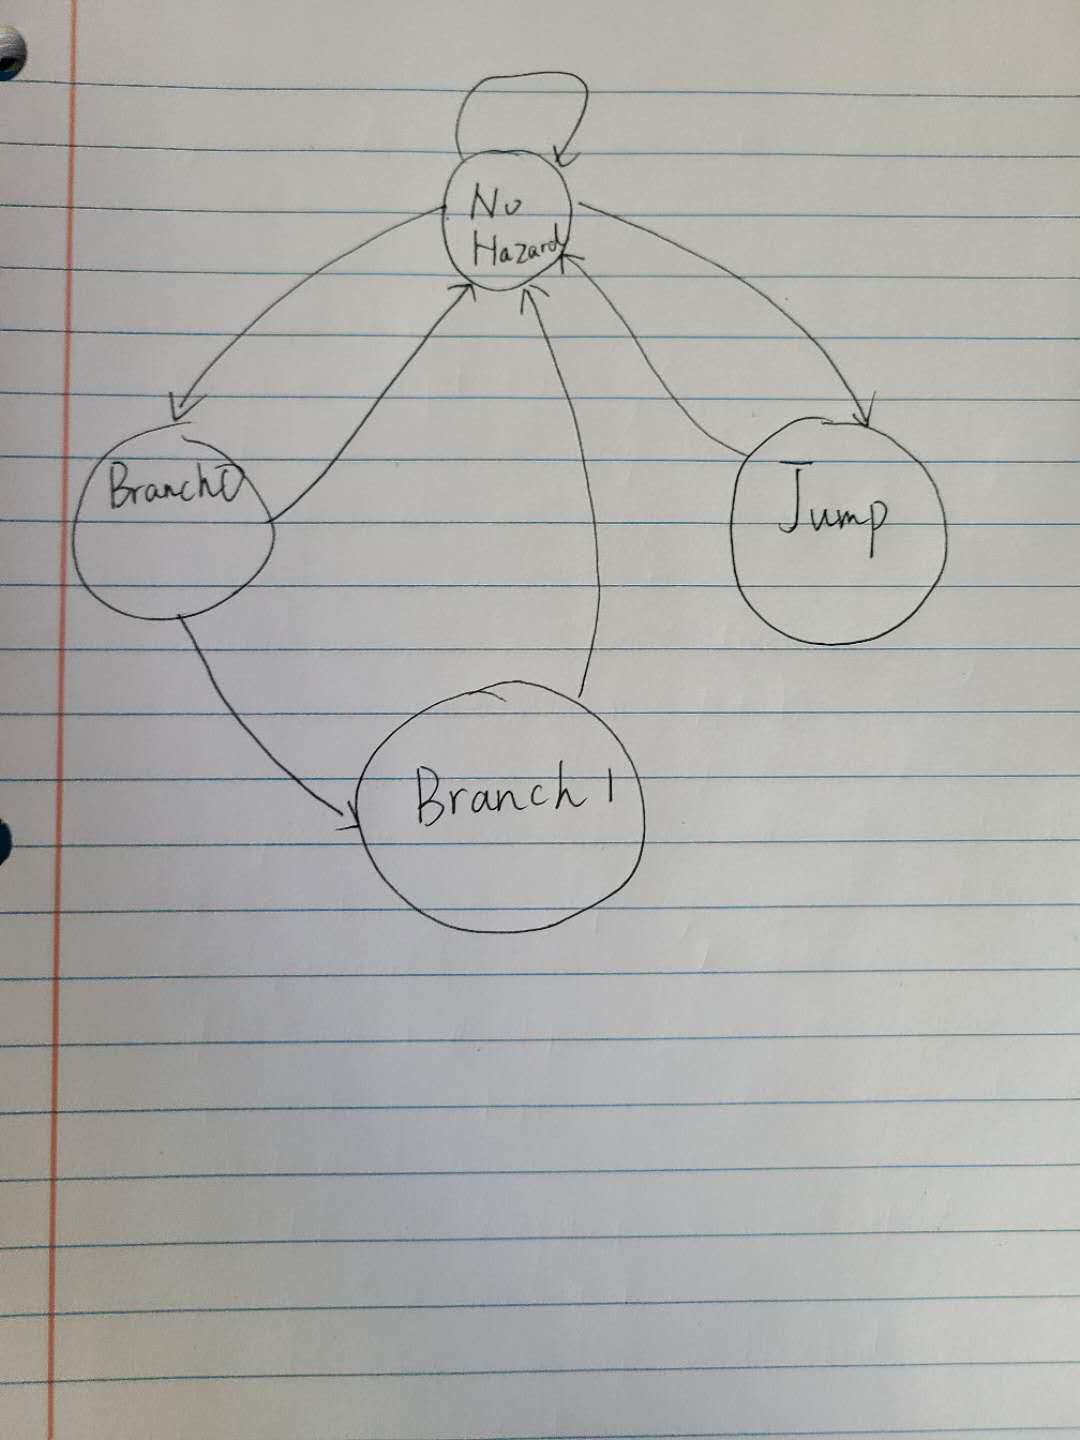 No
Hazard
Branch0
Jump
Branch 1